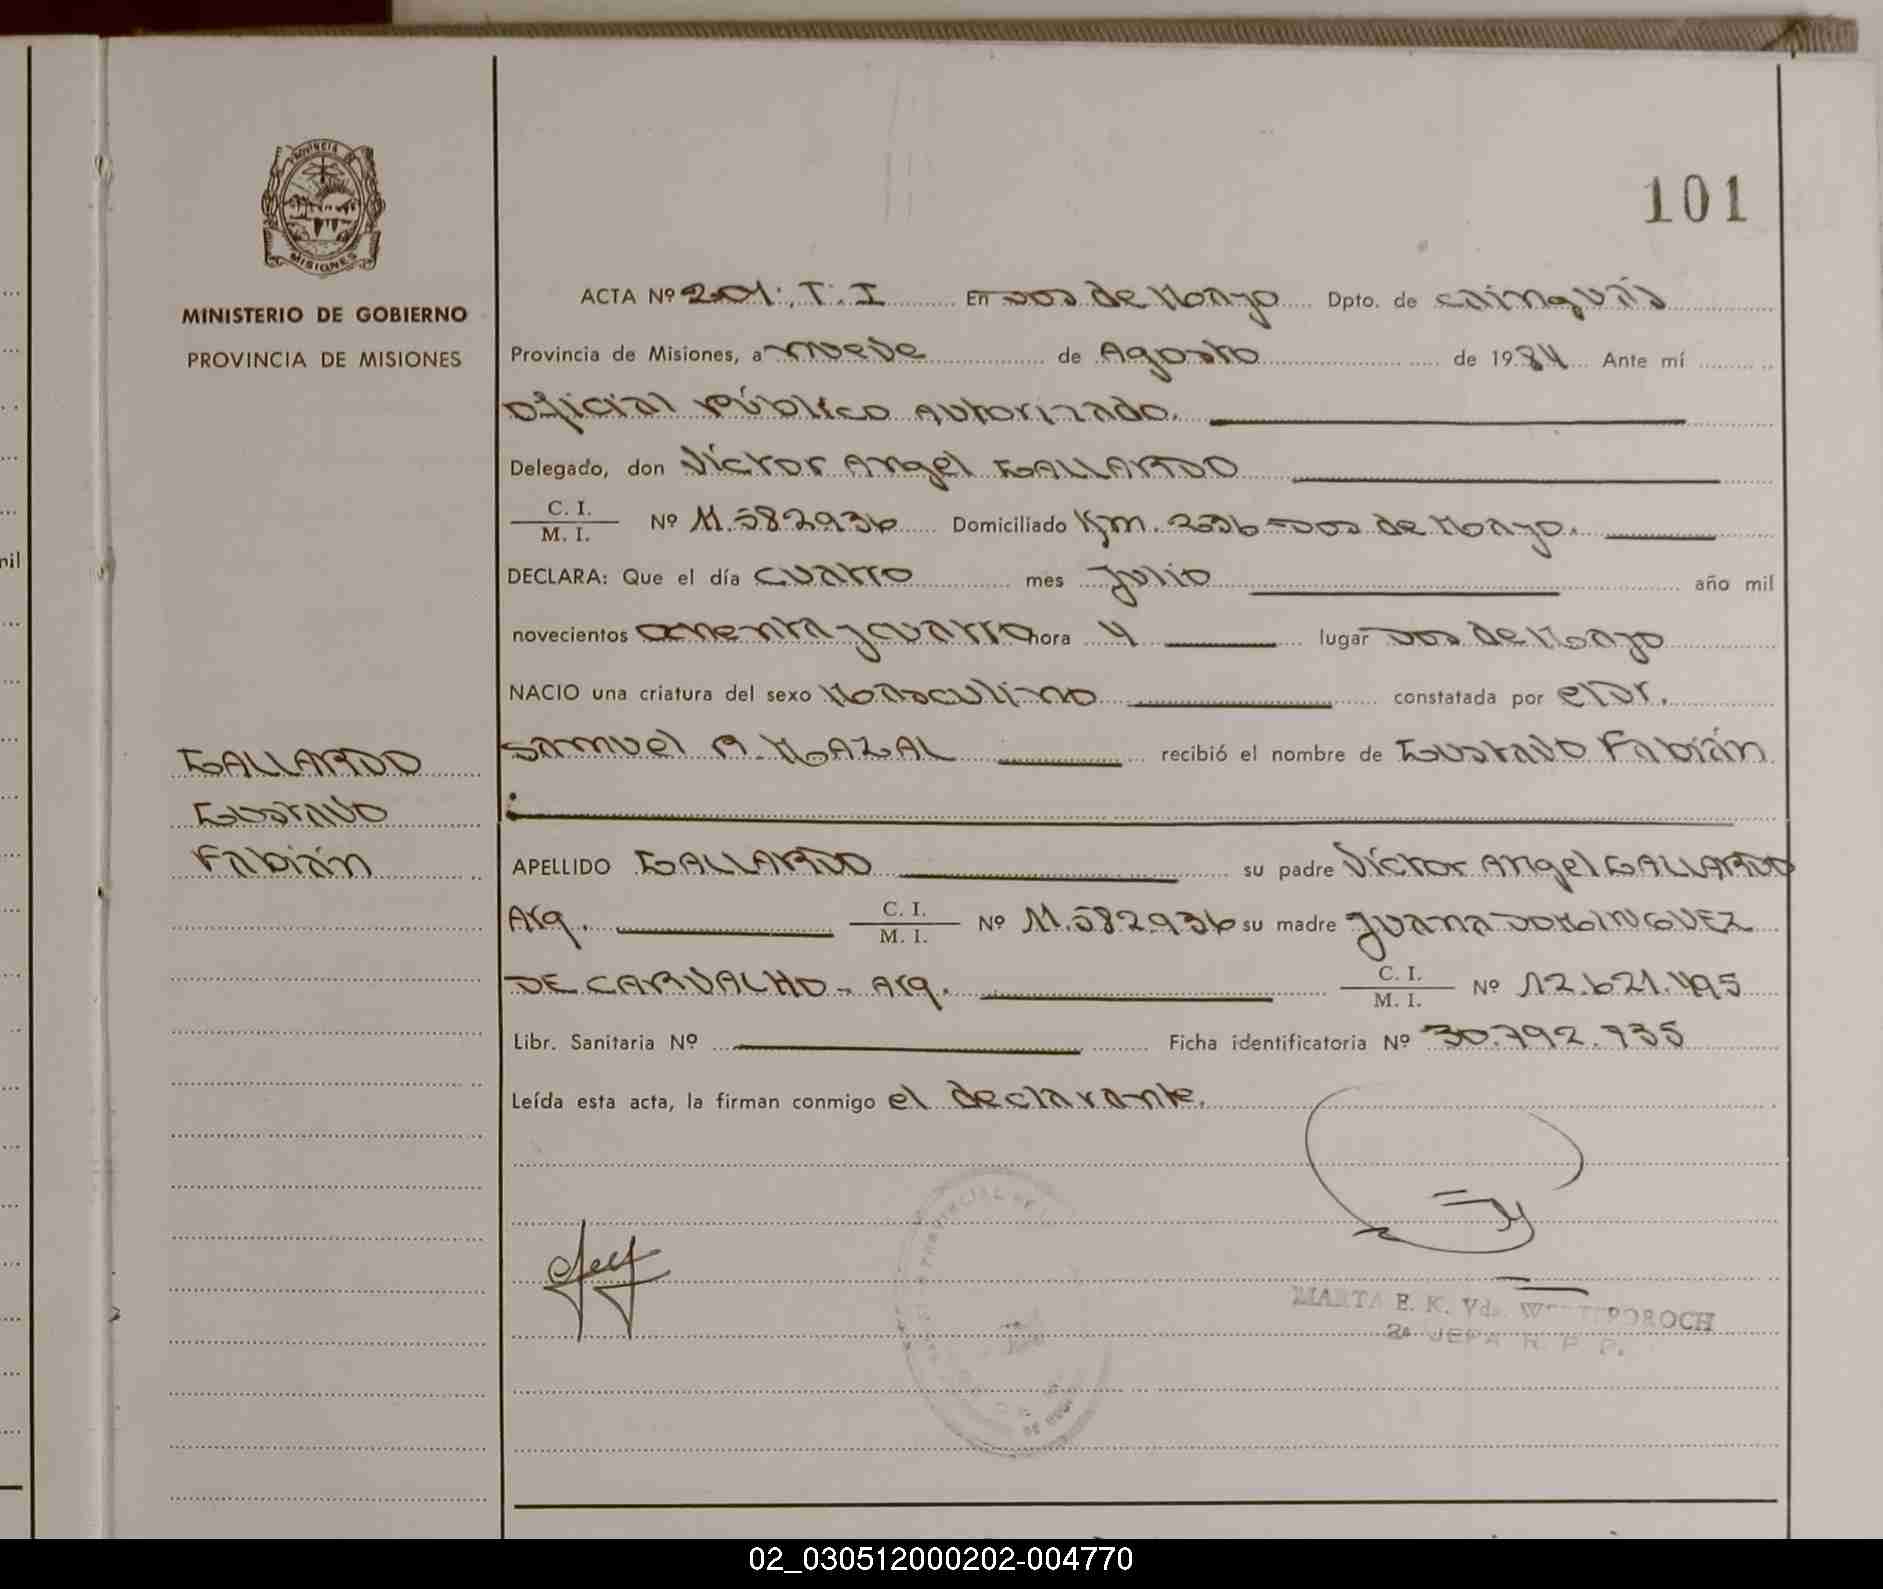 PROVINCIA DE
MISIONES
MINISTERIO DE GOBIERNO
PROVINCIA DE MISIONES
101
ACTA Nº 201:, T: I En Dos de Mayo Dpto. de Cainguás
Provincia de Misiones, a nueve de Agosto de 1984 Ante mí
Oficial Público Autorizado.
Delegado, don Víctor Angel GALLARDO
C. I.
M. I. Nº 11.582936 Domiciliado Km. 236 Dos de Mayo.
DECLARA: Que el día cuatro mes Julio año mil
novecientos ochenta y cuatro hora 4 lugar Dos de Mayo
NACIO una criatura del sexo Masculino constatada por el Dr.
Samuel A. MAZAL recibió el nombre de Gustavo Fabián
GALLARDO
Gustavo
Fabián
APELLIDO GALLARDO su padre Víctor Angel GALLARDO
Arg. C. I.
M. I. Nº 11.582.936 su madre Juana DOMINGUEZ
DE CARVALHO - Arg. C. I.
M. I. Nº 12.621.495
Libr. Sanitaria Nº Ficha identificatoria Nº 30.792.735
Leída esta acta, la firman conmigo el declarante.
MARTA E. K. Vda.
2a JEFA R. P. P.
02_030512000202-004770